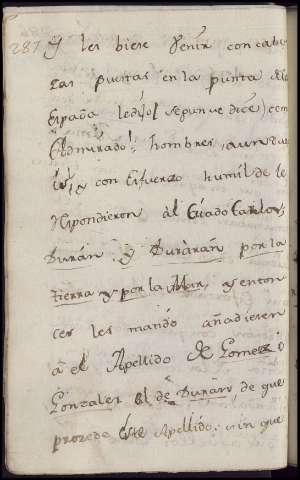 287
Y les biese venir con cabe
zas puestas en la punta de la
Espada les dijo (segun ve dice) com
Admirado: hombres, aun dur
y con Esfuerzo humilde le
Respondieron al Criado Carlos,
Durán y Durarán por la
tierra y por la Mar, y enton
ces les mandó añadiesen
á el Apellido de Gomez ó
Gonzalez el de Durán, de que
procede este Apellido: sin que